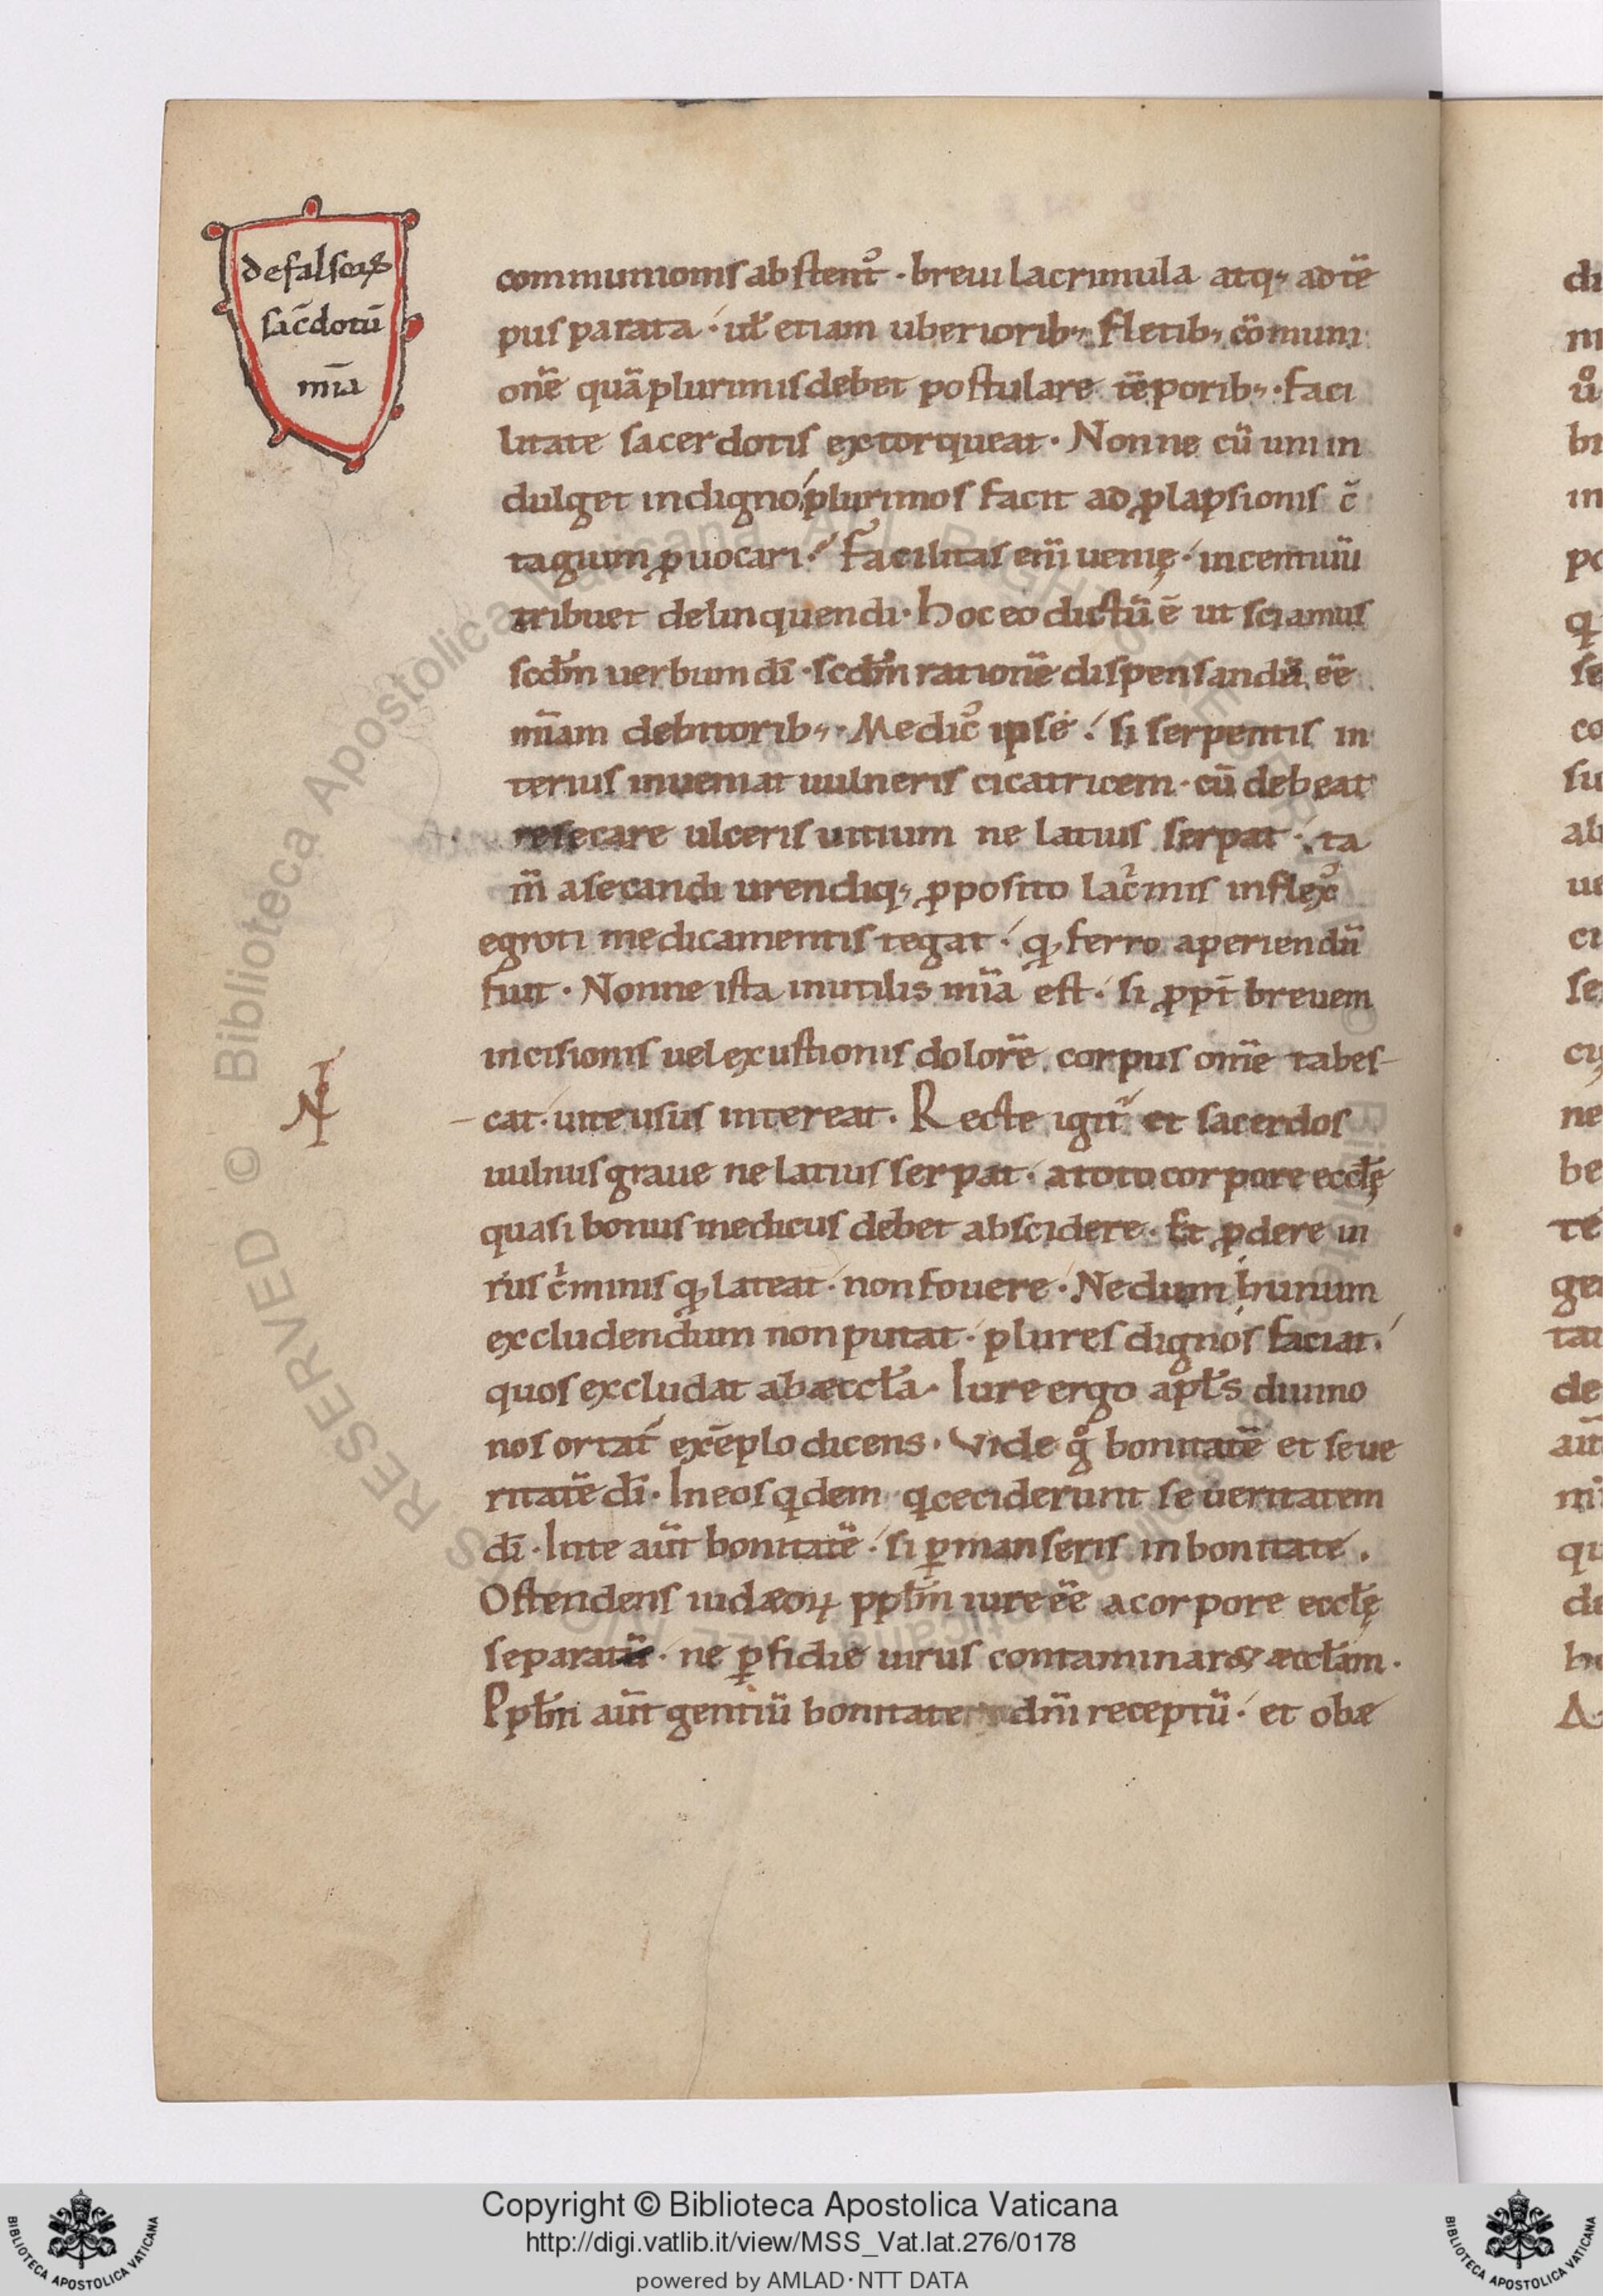 de falsorꝝ
sac̄dotū
mīa
communionis abstent᾽ · breui lacrimula atq; ad tē
pus parata · uł etiam uberiorib; fletib; cōmuni
onē quā plurimis debet postulare tēporib; · faci
litate sacerdotis extorqueat · Nonne cū uni in
dulget indigno plurimos facit ad ꝓlapsionis c̄
tagium ꝓuocari · Facilitas eni᷃ uenię · incentiuū
tribuet delinquendi · hoc eo dictū ē ut sciamus
scdm̄ uerbum dī · scdm̄ rationē dispensandā eē
mīam debitorib; · Medic᾽ ipse · si serpentis in
terius inueniat uulneris cicatricem · cū debeat
resecare ulceris uitium ne latius serpat · ta
m̄ a secandi urendiq; ꝓposito lac̓mis inflex᾽
egroti medicamentis tegat · qđ ferro aperiendū
fuit · Nonne ista inutilis mīa est · si ꝓpt̄ breuem
incisionis uel exustionis dolorē corpus omē tabes
cat · uite usus intereat · Recte igit᷑ et sacerdos
uulnus graue ne latius serpat · a toto corpore eccłę
quasi bonus medicus debet abscidere · Et ꝓdere ui
rus c̓minis qđ lateat · non fouere · Ne dum hunum
excludendum non putat · plures dignos faciat ·
quos excludat ab æccła · Iure ergo apłs diuino
nos ortat᷑ exēplo dicens · Vide gͦ bonitatē et seue
ritatē dī · In eos qdem q ceciderunt seueritatem
dī · In te aūt bonitatē · si ꝑmanseris in bonitate ·
Ostendens iudæoꝝ ppłm iure eē a corpore eccłę
separatū · ne ꝑfidie uirus contaminar& æcctam ·
Ppłm aūt gentiū bonitate dni᷃ receptū · et obæ
Copyright © Biblioteca Apostolica Vaticana
http://digi.vatlib.it/view/MSS_Vat.lat.276/0178
powered by AMLAD·NTT DATA